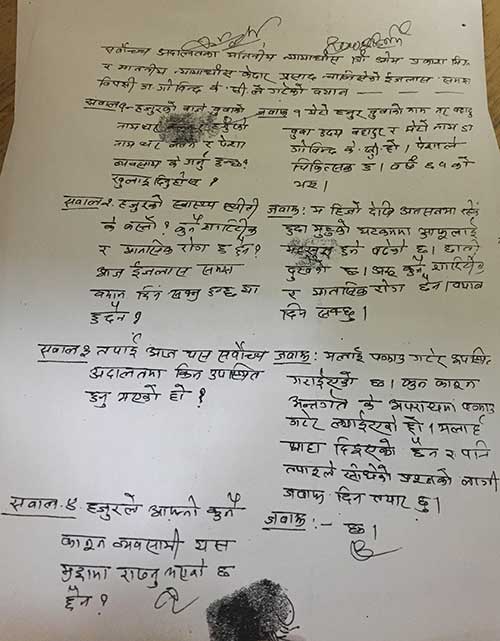 सर्वोच्च अदालतका माननीय न्यायाधीश श्री ओम प्रकाश मिश्र
र माननीय न्यायाधीश केदार प्रसाद चालिसेको ईजलास समक्ष
विपक्षी डा गोविन्द के.सी.ले गरेको बयान
सवाल १- हजुरको बाबु बाजेको
नाम थर
नाम थर वतन र पेशा
व्यवसाय के गर्नु हुन्छ?
खुलाइ दिनुहोस?
जवाफ १ मेरो हजुर बुवाको नाम
बुवा उदय बहादुर र मेरो नाम डा
गोविन्द के.सी हो। पेशाले
चिकित्सक हुं। वर्ष ६१ को
भए।
सवाल २. हजुरको स्वास्थ्य स्थीती
के कस्तो? कुनै शारिरीक
र मानसिक रोग छ छैन?
आज ईजलास समक्ष
बयान दिन सक्नु हुन्छ वा
हुदैन?
जवाफ: म हिजो देखि अनसनमा रहेको
हुदा मुटुको धड्कनमा आफुलाई
महसुस हुने गरेको छ। छाती
दुखेको छ। अरु कुनै शारिरीक
र मानसिक रोग छैन। बयान
दिन सक्छु।
सवाल ३ तपाई आज यस सर्वोच्च
अदालतमा किन उपस्थित
हुनु भएको हो?
जवाफ: मलाई पक्राउ गरेर उपस्थित
गराईएको छ। कुन कानून
अन्तर्गत के अपराधमा पक्राउ
गरेर ल्याईएको हो। मलाई
थाहा दिइएको छैन र पनि
तपाईले सोधेको प्रश्नको लागी
जवाफ दिन तयार छु।
सवाल. ४. हजुरले आफ्नो कुनै
कानून व्यवसायी यस
मुद्दामा राख्नु भएको छ
छैन?
जवाफ:- छ।